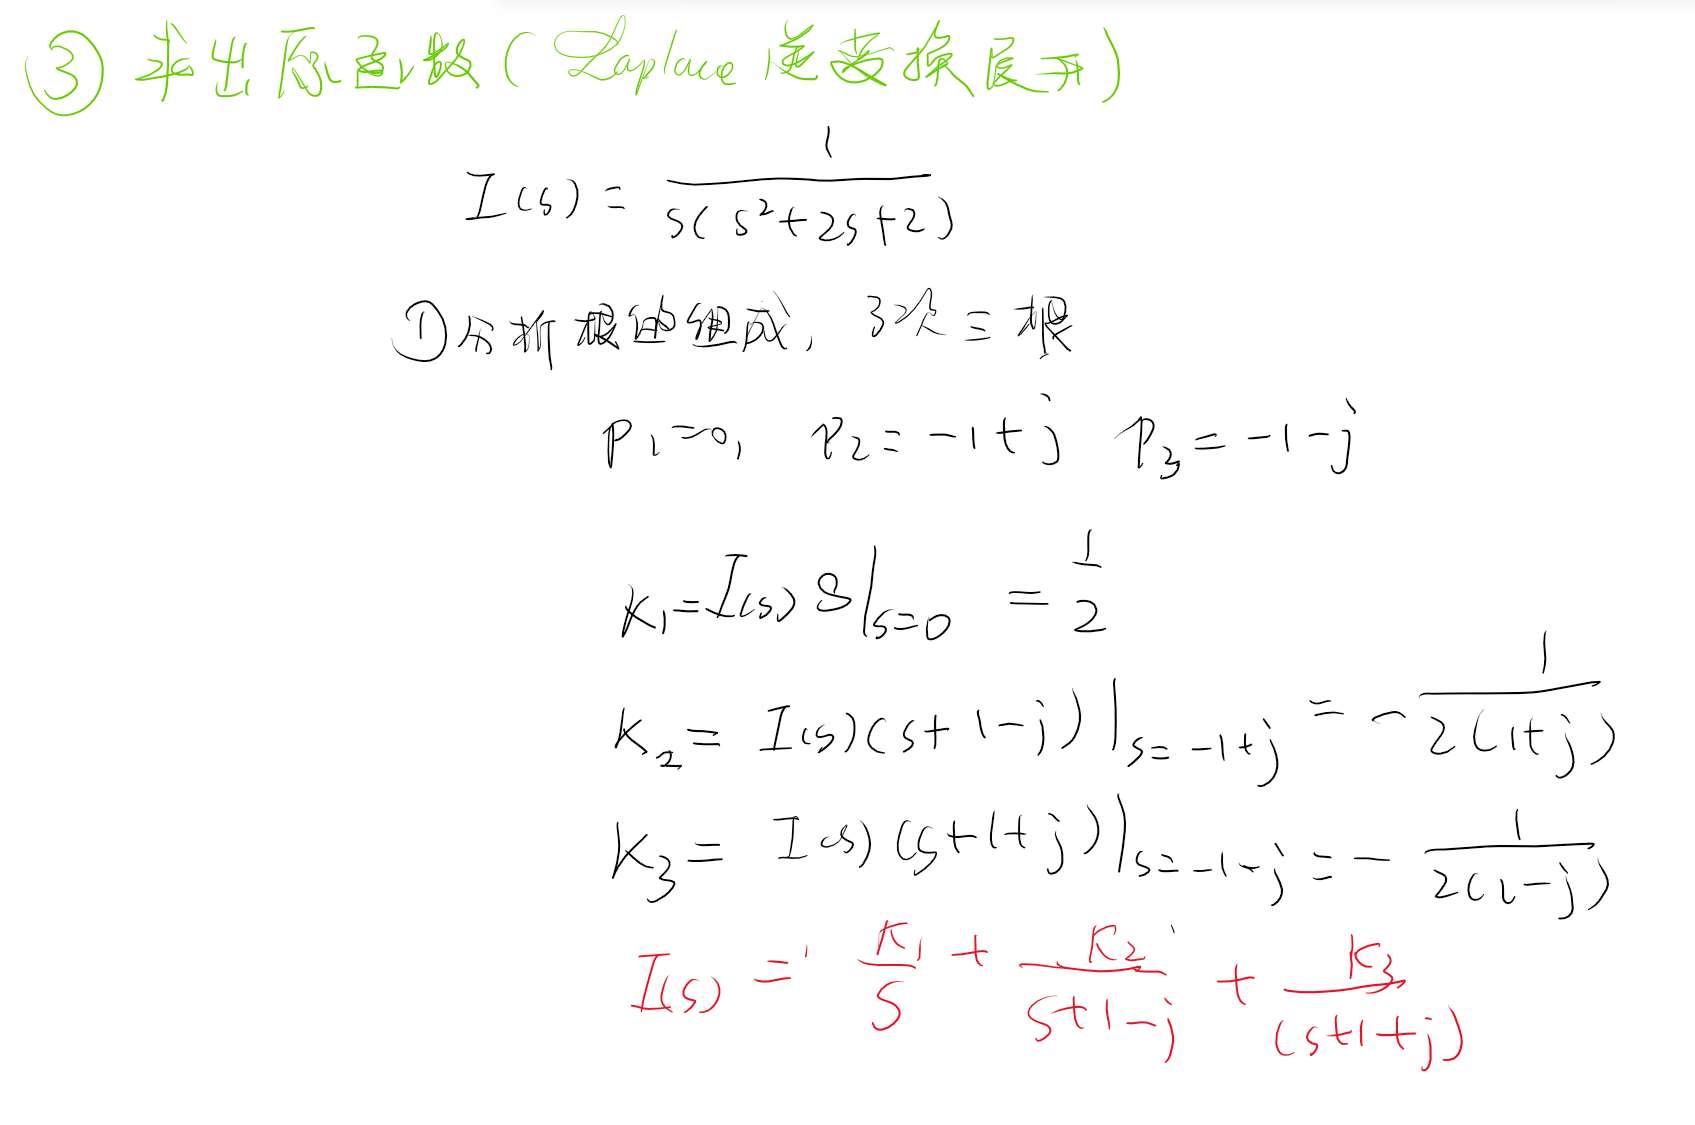 ③ 求出原函数(Laplace 逆变换展开)
I(s) = 1/(s(s²+2s+2))
①分析根的组成, 3次三根
p₁=0, p₂=-1+j p₃=-1-j
K₁=I(s) S|s=0 = 1/2
K₂= I(s)(s+1-j)|s=-1+j = - 1/(2(1+j))
K₃= I(s)(s+1+j)|s=-1-j = - 1/(2(1-j))
I(s) = K₁/S + K₂/(S+1-j) + K₃/(s+1+j)